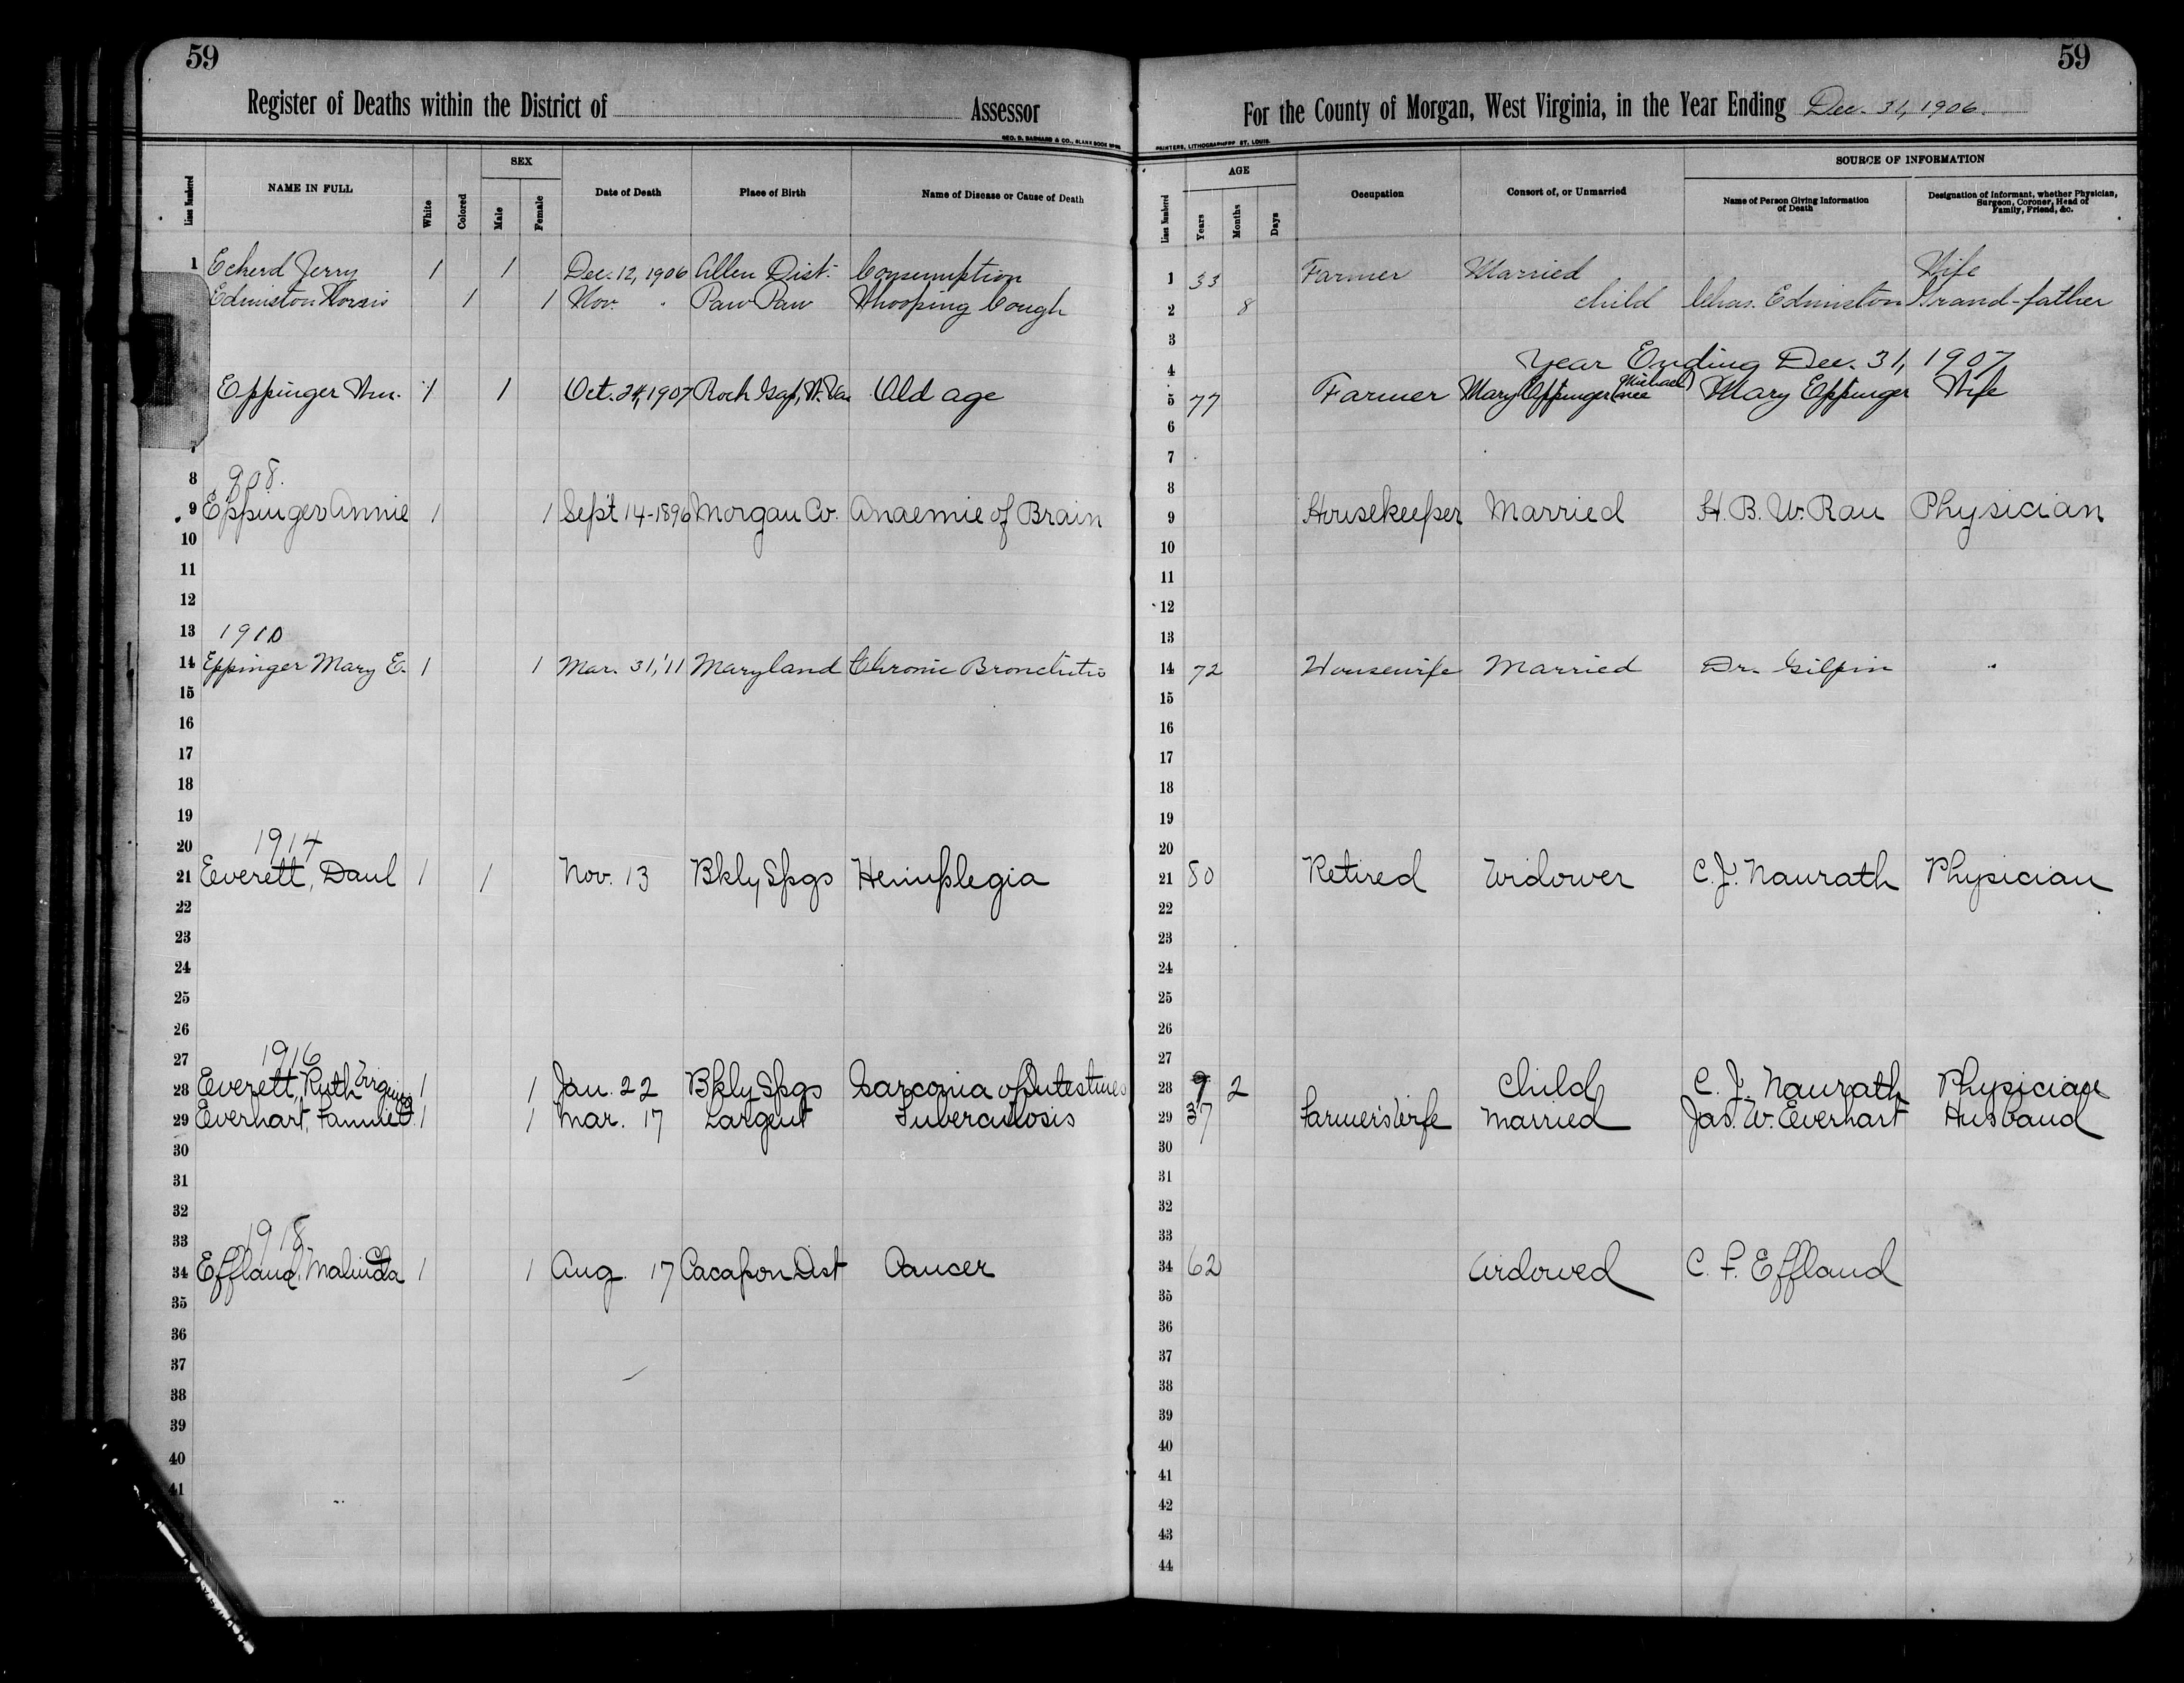 59
59
Register of Deaths within the District of Assessor
For the County of Morgan, West Virginia, in the Year Ending Dec. 31, 1906.
GEO. D. BARNARD & CO., BLANK BOOK
PRINTERS, LITHOGRAPHERS ST. LOUIS.
Lines Numbered NAME IN FULL White Colored SEX Male Female Date of Death Place of Birth Name of Disease or Cause of Death
Lines Numbered AGE Years Months Days Occupation Consort of, or Unmarried SOURCE OF INFORMATION Name of Person Giving Information of Death Designation of Informant, whether Physician, Surgeon, Coroner, Head of Family, Friend, &c.
1 Eckerd Jerry 1 1 Dec. 12, 1906 Allen Dist. Consumption 1 33 Farmer Married Wife
Edmiston 1 1 Nov. Paw Paw Whooping Cough 2 8 child Chas. Edmiston Grand-father
3
4 Year Ending Dec. 31, 1907
Eppinger Wm. 1 1 Oct. 24, 1907 Rock Gap, W. Va Old age 5 77 Farmer Mary Eppinger (nee Michael) Mary Eppinger Wife
6
7
8 908. 8
9 Eppinger Annie 1 1 Sept 14-1896 Morgan Co. Anaemie of Brain 9 Housekeeper Married H. B. W. Rau Physician
10 10
11 11
12 12
13 1910 13
14 Eppinger Mary E. 1 1 Mar. 31, '11 Maryland Chronic Bronchitis 14 72 Housewife Married Dr. Gilpin "
15 15
16 16
17 17
18 18
19 19
20 1914 20
21 Everett, Danl 1 1 Nov. 13 Bkly Spgs Hemiplegia 21 80 Retired Widower C. J. Naurath Physician
22 22
23 23
24 24
25 25
26 26
27 1916 27
28 Everett, Ruth Virginia 1 1 Jan. 22 Bkly Spgs Sarcoma of Intestines 28 9 2 Child C. J. Naurath Physician
29 Everhart, Fannie 1 1 Mar. 17 Largent Tuberculosis 29 37 Farmer's Wife Married Jas. W. Everhart Husband
30 30
31 31
32 32
33 1918 33
34 Effland, Malinda 1 1 Aug. 17 Cacapon Dist Cancer 34 62 Widowed C. F. Effland
35 35
36 36
37 37
38 38
39 39
40 40
41 41
42
43
44